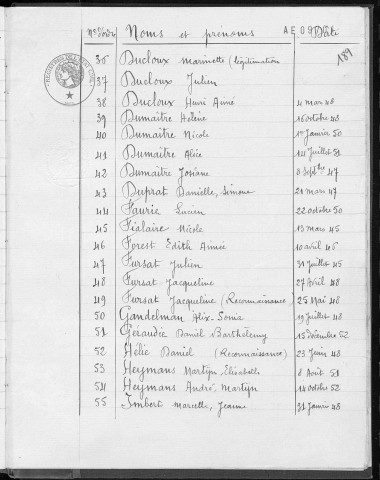 Nos d'ordre Noms et prénoms Date
189
36 Ducloux Marinette (légitimation
37 Ducloux Julien
38 Ducloux Henri Aimé 4 mars 48
39 Dumaître Hélène 16 octobre 48
40 Dumaître Nicole 1er Janvier 50
41 Dumaître Alice 14 Juillet 51
42 Dumaître Josiane 8 Septbre 47
43 Duprat Danielle, Simone 21 mars 47
44 Faurie Lucien 22 octobre 50
45 Fialaire Nicole 13 mars 45
46 Forest Edith Aimée 10 avril 46
47 Fursat Julien 31 Juillet 45
48 Fursat Jacqueline 27 Avril 48
49 Fursat Jacqueline (Reconnaissance) 25 Mai 48
50 Gandelman Alix-Sonia 19 Juillet 48
51 Géraudie Daniel Barthélemy 15 Décembre 52
52 Hélie Daniel (Reconnaissance) 23 Juin 48
53 Heymans Martyn Elisabeth 8 Août 51
54 Heymans André, Martyn 14 octobre 52
55 Imbert Marcelle, Jeanne 31 Janvier 48